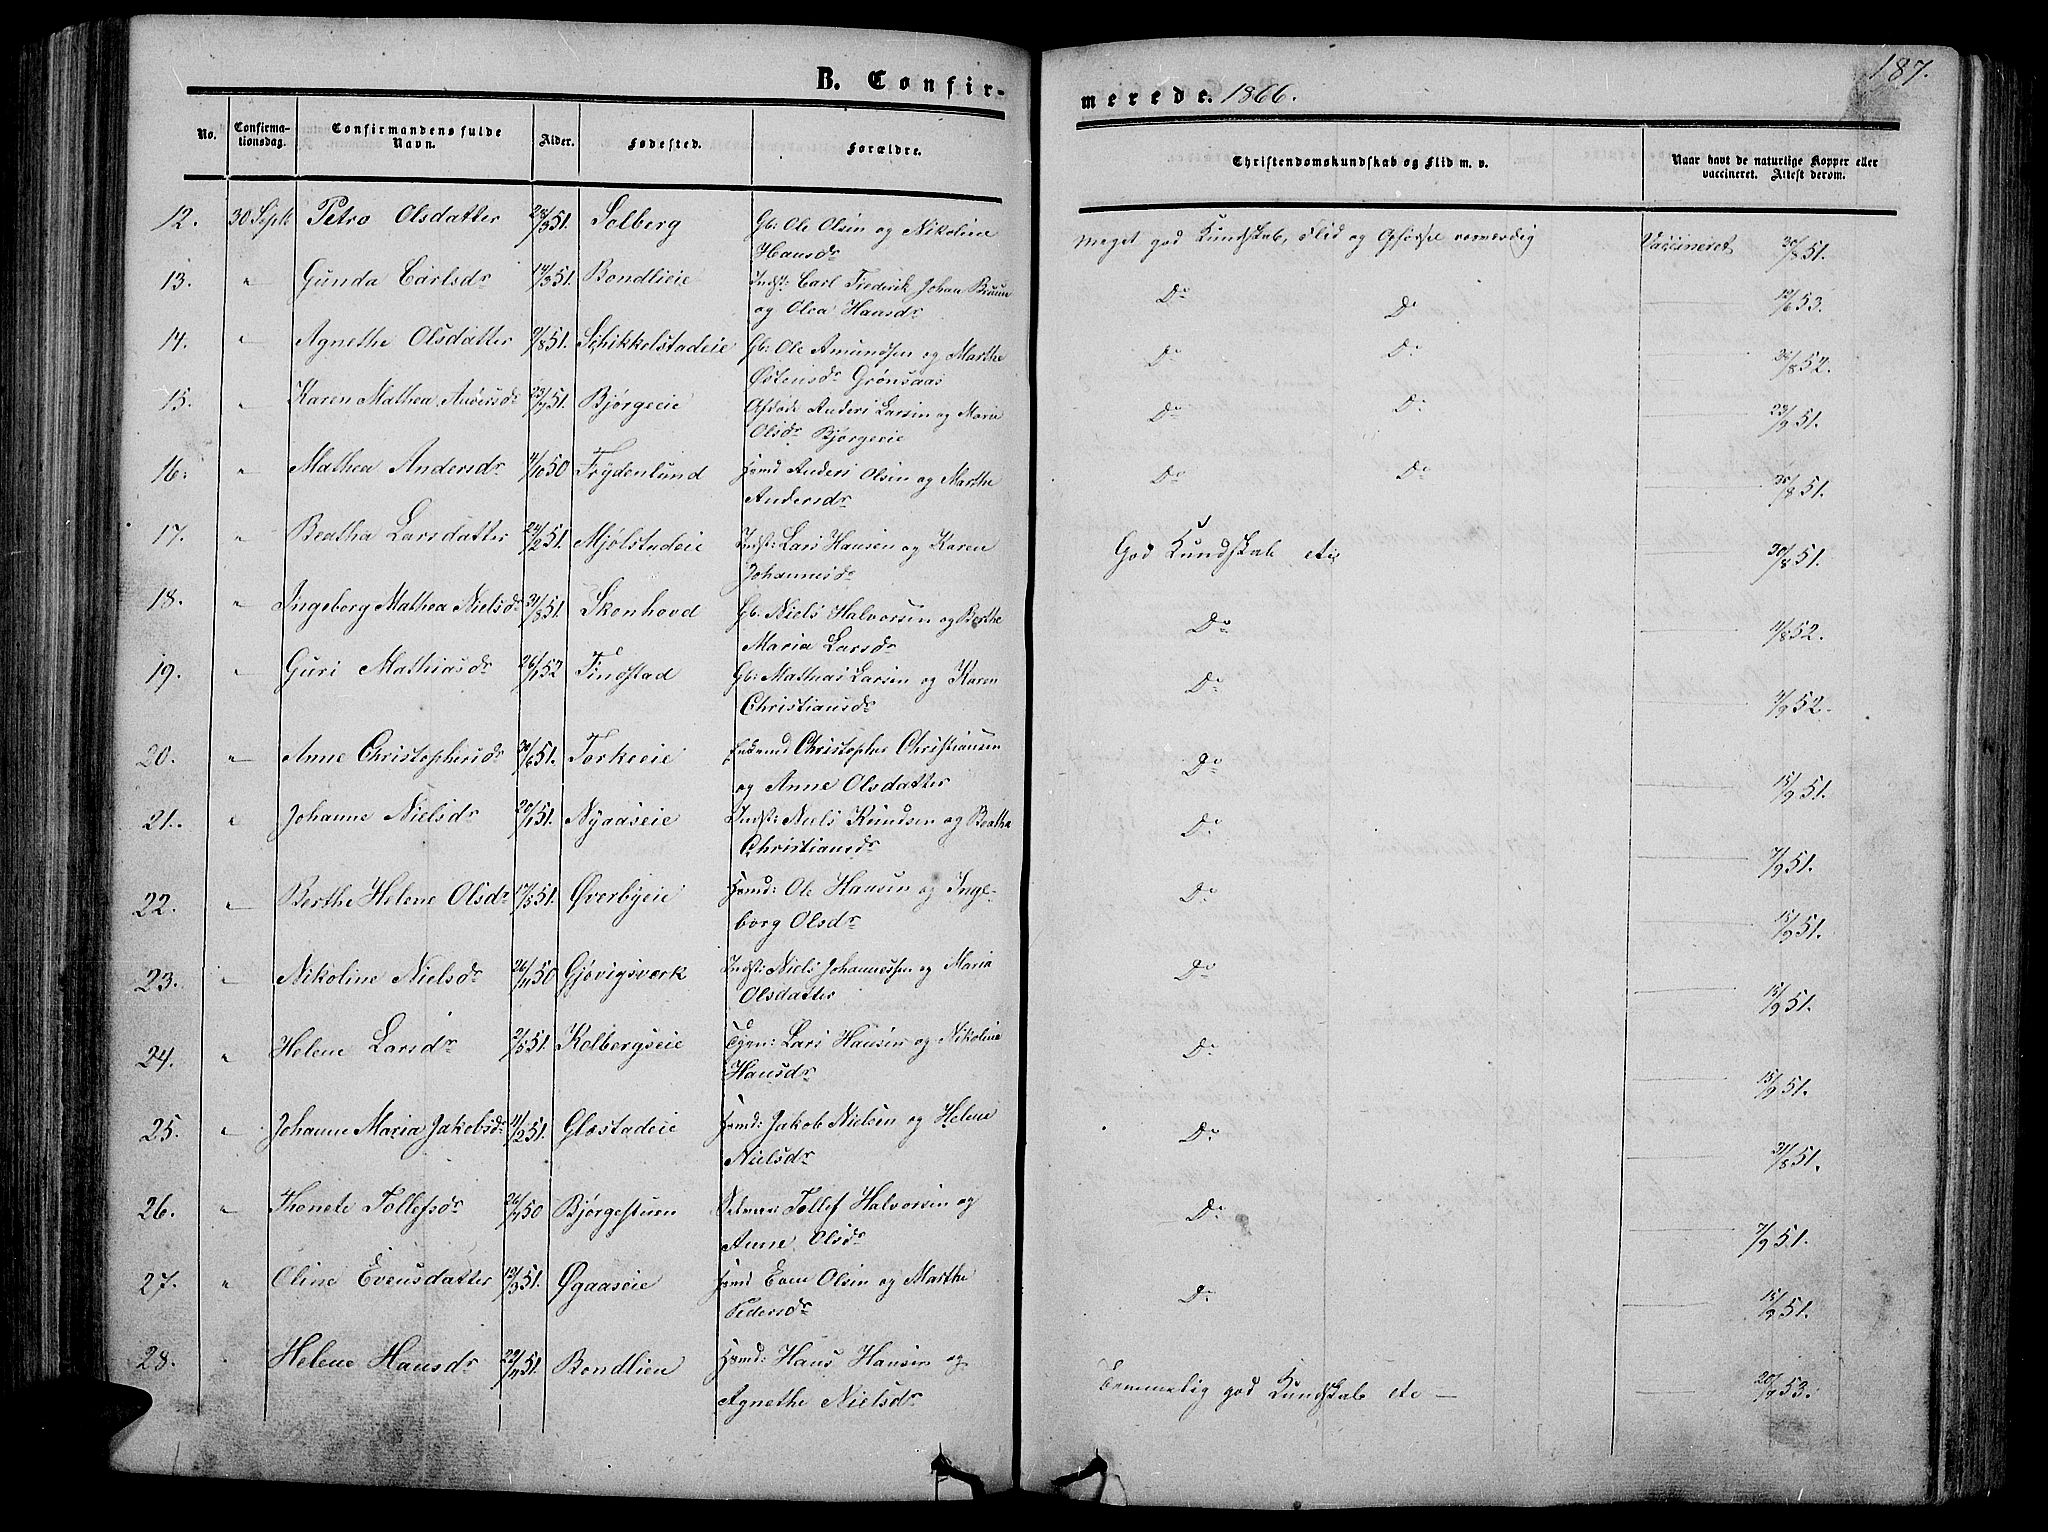 187.
B. Confir-
merede. 1866.
No.
Confirma-
tionsdag.
Confirmandens fulde
Navn.
Alder.
Fødested.
Forældre.
Christendomskundskab og Flid m. v.
Naar havt de naturlige Kopper eller
vaccineret. Attest derom.
12. 30 Sept. Petra Olsdatter 28/3 51. Solberg Gb: Ole Olsen og Nikoline
Hansdr
Meget god Kundskab, Flid og Opførsel Vaccineret 30/8 51.
13. " Gunda Carlsdr 14/3 51. Bondlieie Indst: Carl Frederik Johan Bruun
og Olea Hansdr
Do Do 12/6 53.
14. " Agnethe Olsdatter 9/8 51. Schikkelstadeie Gb: Ole Amundsen og Marthe
Østensdr Grønsaas
Do Do 30/8 52.
15. " Karen Mathea Andersdr 23/7 51. Bjørgeeie Afdøde Anders Larsen og Maria
Olsdr Bjørgeeie
Do Do 29/9 51.
16. " Mathea Andersdr 4/10 50 Frydenlund Hmd Anders Olsen og Marthe
Andersdr
Do Do 30/8 51.
17. " Beatha Larsdatter 24/2 51. Mjølstadeie Indst: Lars Hansen og Karen
Johannesdr
God Kundskab etc 30/8 51.
18. " Ingeborg Mathea Nielsdr 31/8 51. Skonhovd Gb: Niels Halvorsen og Berthe
Maria Larsdr
Do 11/8 52.
19. " Guri Mathiasdr 26/1 52 Findstad Gb: Mathias Larsen og Karen
Christiansdr
Do 7/9 52.
20. " Anne Christophersdr 30/6 51. Torkeeie Christopher Christiansen
og Anne Olsdatter
Do 15/9 51.
21. " Johanne Nielsdr 20/1 51. Nyaaseie Indst: Niels Knudsen og Beathe
Christiansdr
Do 7/9 51.
22. " Berthe Helene Olsdr 17/5 51. Øverbyeie Hmd: Ole Hansen og Inge-
borg Olsdr
Do 15/9 51.
23. " Nikoline Nielsdr 26/11 50 Gjøvigsværk Indst: Niels Johannessen og Maria
Olsdatter
Do 15/9 51.
24. " Helene Larsdr 2/5 51. Kolbergseie Lars Hansen og Nikoline
Hansdr
Do 15/9 51.
25. " Johanne Maria Jakobsdr 11/2 51. Glæstadeie Hmd: Jakob Nielsen og Helene
Nielsdr
Do 31/8 51.
26. " Thonete Tollefsdr 26/7 50 Bjørgestuen Selveier: Tollef Halvorsen og
Anne Olsdr
Do 7/9 51.
27. " Oline Evensdatter 12/3 51. Øgaaseie Hmd Even Olsen og Marthe
Pedersdr
Do 15/9 51.
28. " Helene Hansdr 22/4 51. Bondlien Hmd: Hans Hansen og
Agnethe Nielsdr
Temmelig god Kundskab etc — 20/7 53.